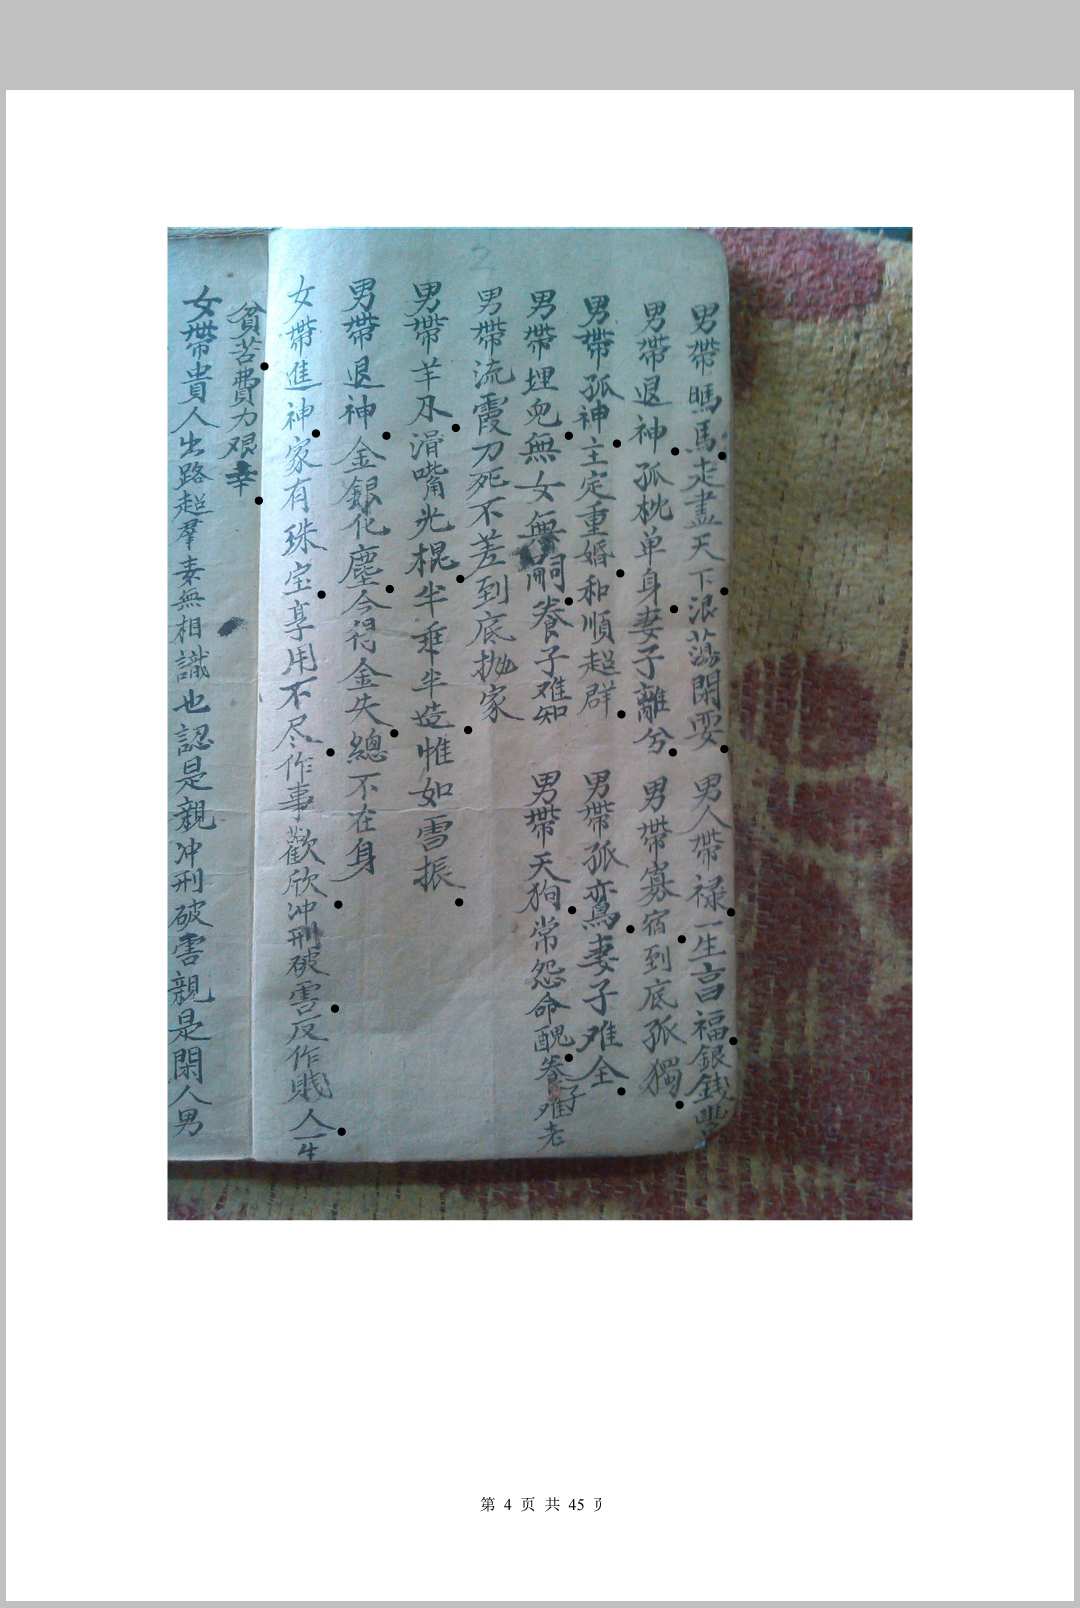 2
男帶瞎馬走盡天下浪蕩閑耍 男人帶禄一生言福銀錢豐
男帶退神孤枕单身妻子離分 男帶寡宿到底孤獨
男帶孤神主定重婚和順超群 男帶孤鸞妻子难全
男帶埋兒無女無嗣養子难知 男帶天狗常怨命醜養子难老
男帶流霞刀死不差到底抛家
男帶羊刃滑嘴光棍半乖半造惟如雪振
男帶退神金銀化塵今得金失總不在身
女帶進神家有珠宝享用不尽作事歡欣冲刑破害反作賎人一生
貧苦費力艰幸
女帶貴人出路超羣素無相識也認是親冲刑破害親是閑人男
第 4 页 共 45